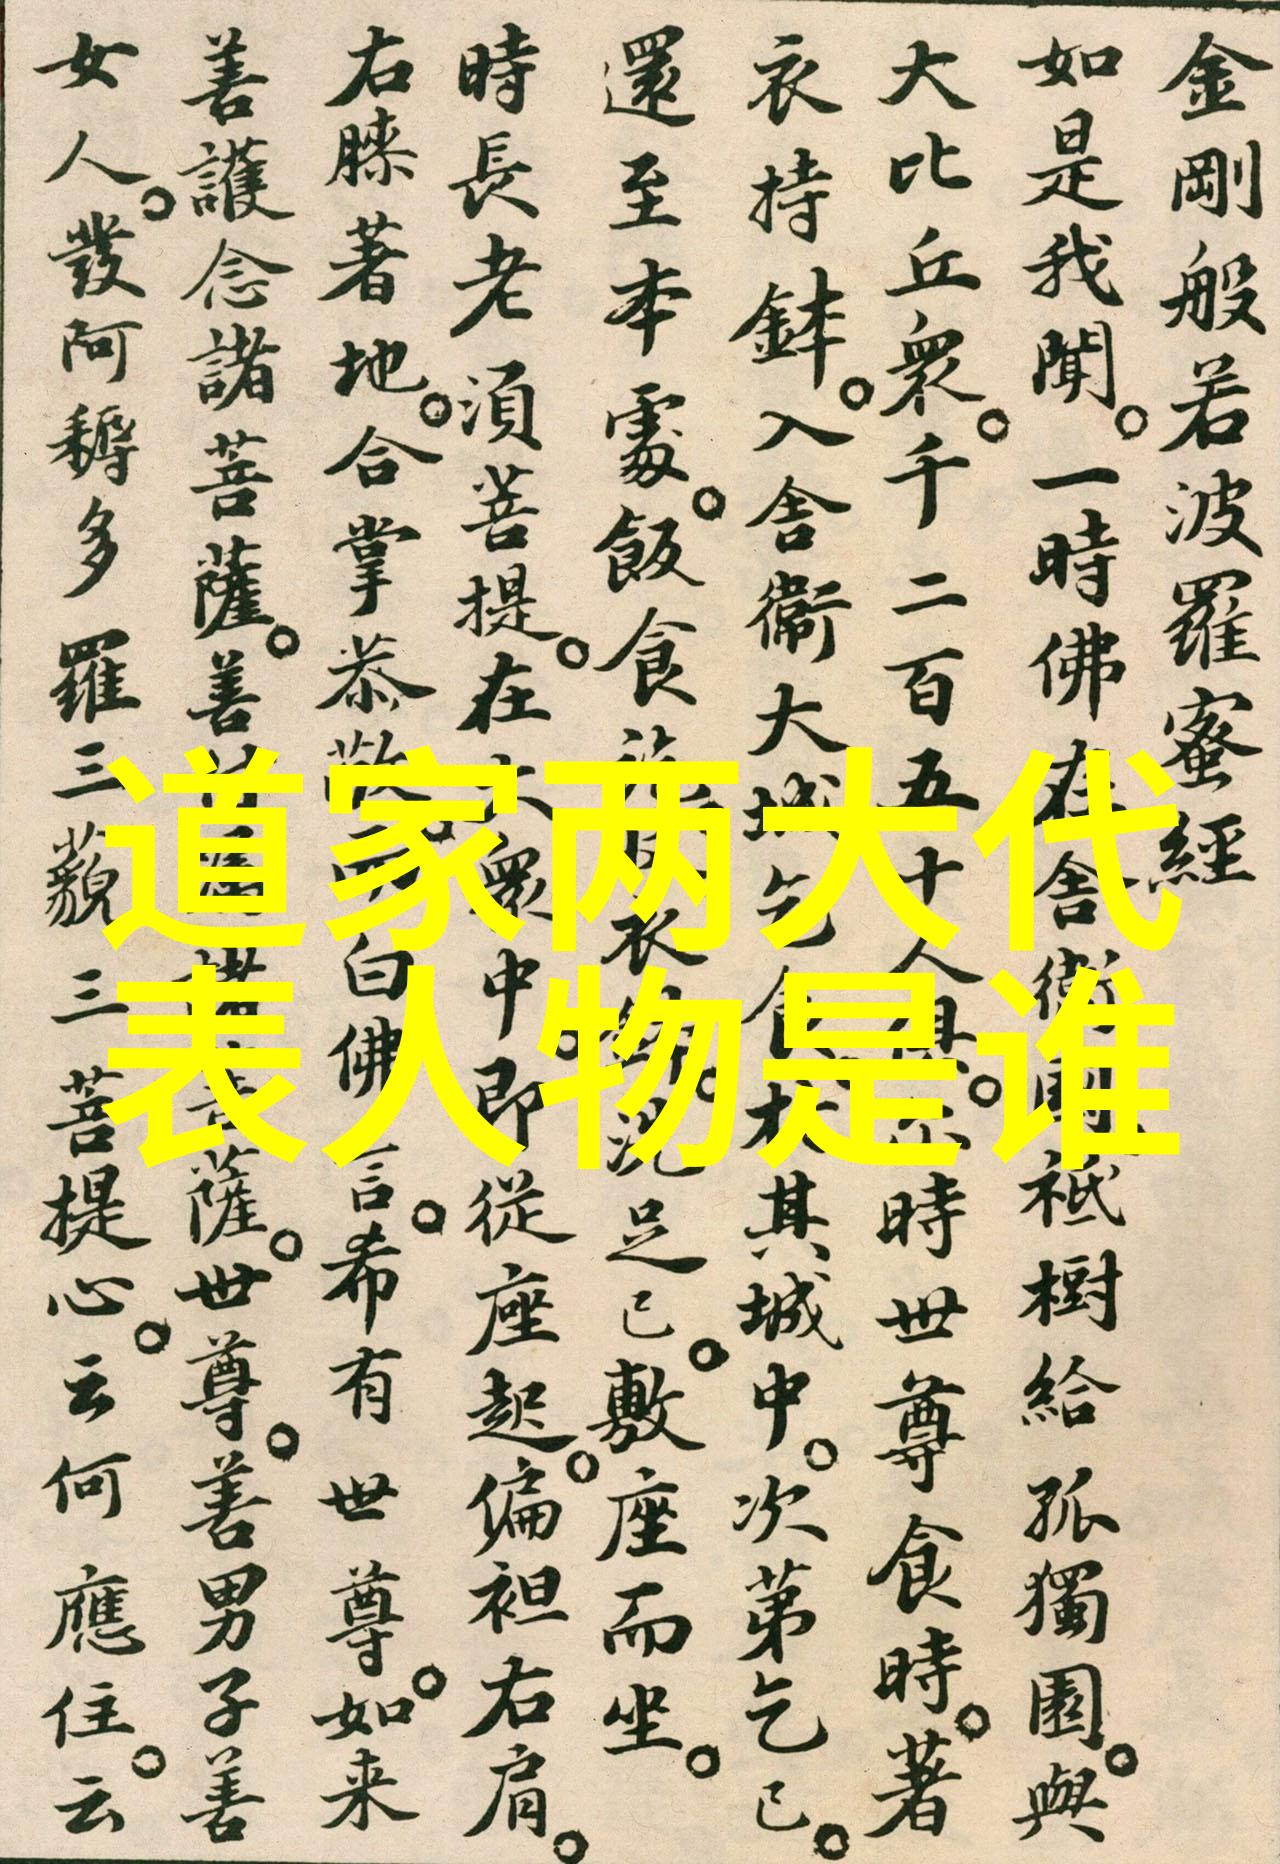 金剛般若波羅蜜經
如是我聞。一時佛在舍衛國祇樹給孤獨園。與
大比丘衆。千二百五十人俱。尒時世尊食時。著
衣持鉢。入舍衛大城乞食。於其城中。次第乞已。
還至本處。飯食訖收衣鉢。洗足已。敷座而坐。
時長老須菩提。在大衆中。即從座起。偏袒右肩。
右膝著地。合掌恭敬。而白佛言。希有世尊。如来
善護念諸菩薩。善付囑諸菩薩。世尊。善男子善
女人。發阿耨多羅三藐三菩提心。云何應住。云
道家两大代
表人物是谁